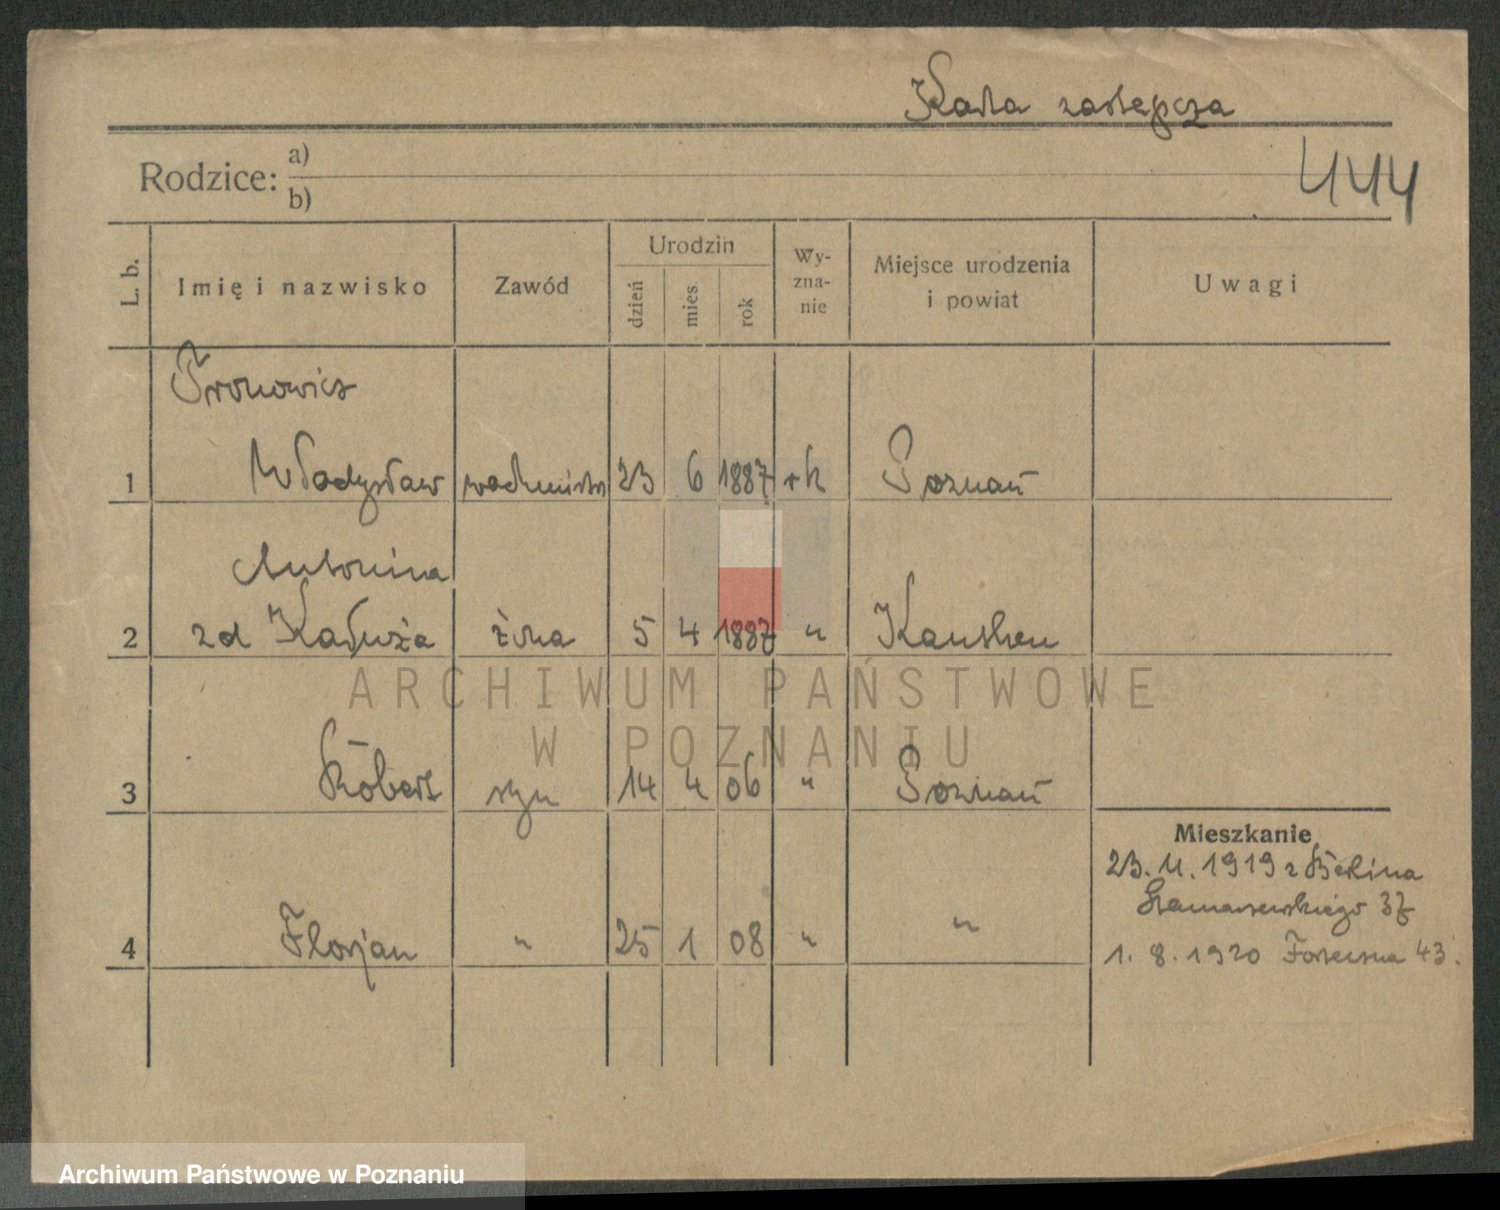 Karta zastępcza
444
Rodzice: a)
b)
L. b. Imię i nazwisko Zawód Urodzin dzień mies. rok Wy-zna-nie Miejsce urodzenia i powiat Uwagi
Pronowicz
1 Władysław wachmistrz 23 6 1887 rk Poznań
Antonina
2 zd Kałuża żona 5 4 1887 " 
3 Robert syn 14 4 06 " Poznań
Mieszkanie
23. 11. 1919 z Berlina
Szamarzewskiego 37
4 Florjan " 25 1 08 " "
1. 8. 1920 Forteczna 43.
ARCHIWUM PAŃSTWOWE
W POZNANIU
Archiwum Państwowe w Poznaniu